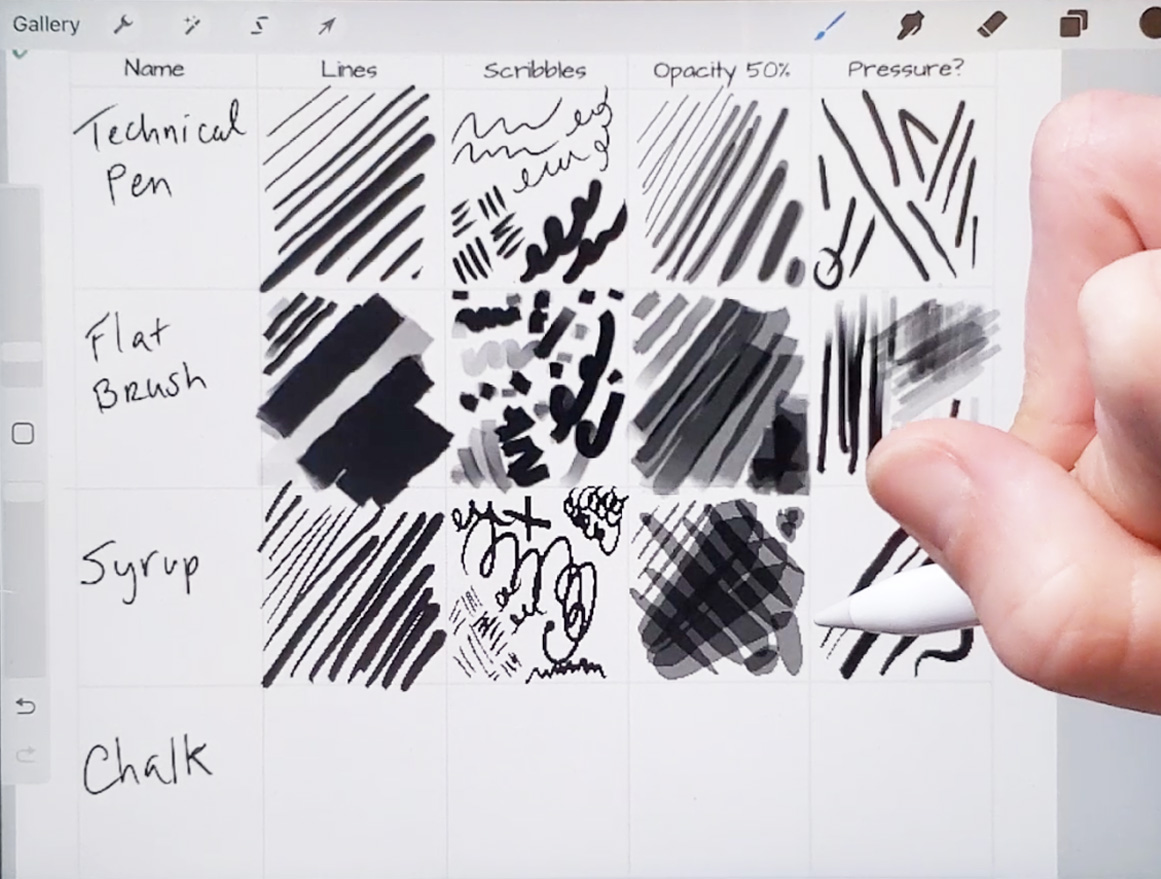 Gallery
Name Lines Scribbles Opacity 50% Pressure?
Technical
Pen
Flat
Brush
Syrup
Chalk